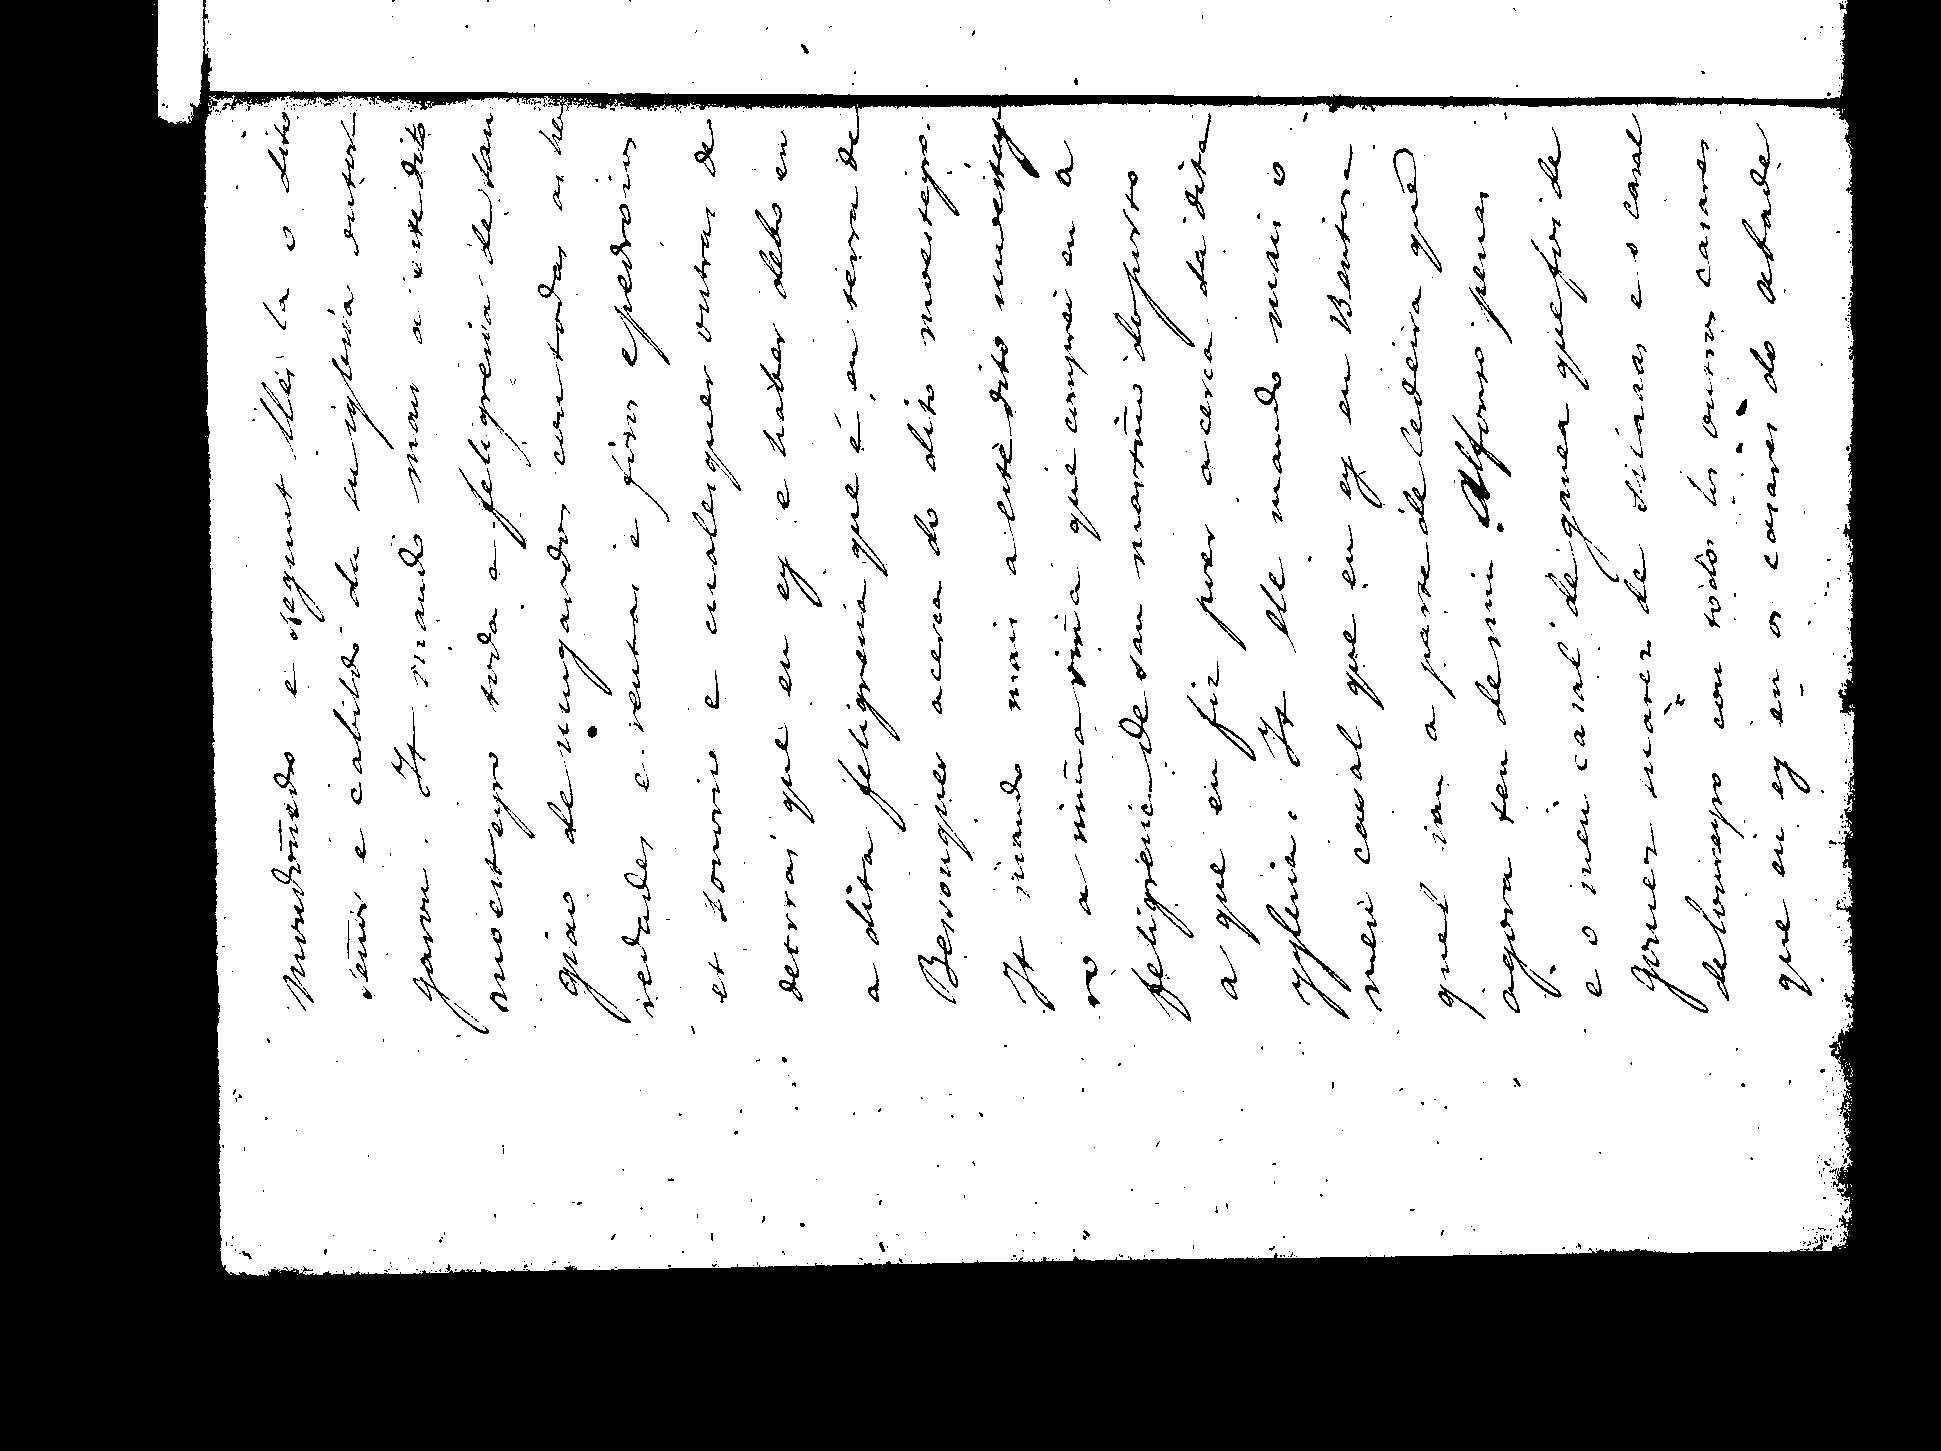 Mondoñedo e segunt llei la o dito
señor e cabildo da iuyglesia outor
garon. It mando mais a este dito
moesteyro toda a feligresia de san
giao de mugardos con todas as he
redades e rentas e foros e pedroios
et señorio e cualesquer outras de
detrras que eu ey e haber debo en
a dita feligresia que é en terra de
Besouquos acerca do dito moesteyro.
It mando mais a este dito moestey
ro a miña viña que comprei en a
feligresia de san martiño do porto
a que eu fiz poer acerca da dita
ygleria. It lle mando mais o
meu casal que eu ey en Bentira
quel ian a parte de ledeira que
agora ten de min Alfonso peres
e o meu casal de gunea que foi de
gomez narez de silinas e o casal
de louseyro con todos los outros casares
que eu ey en os casares do abade